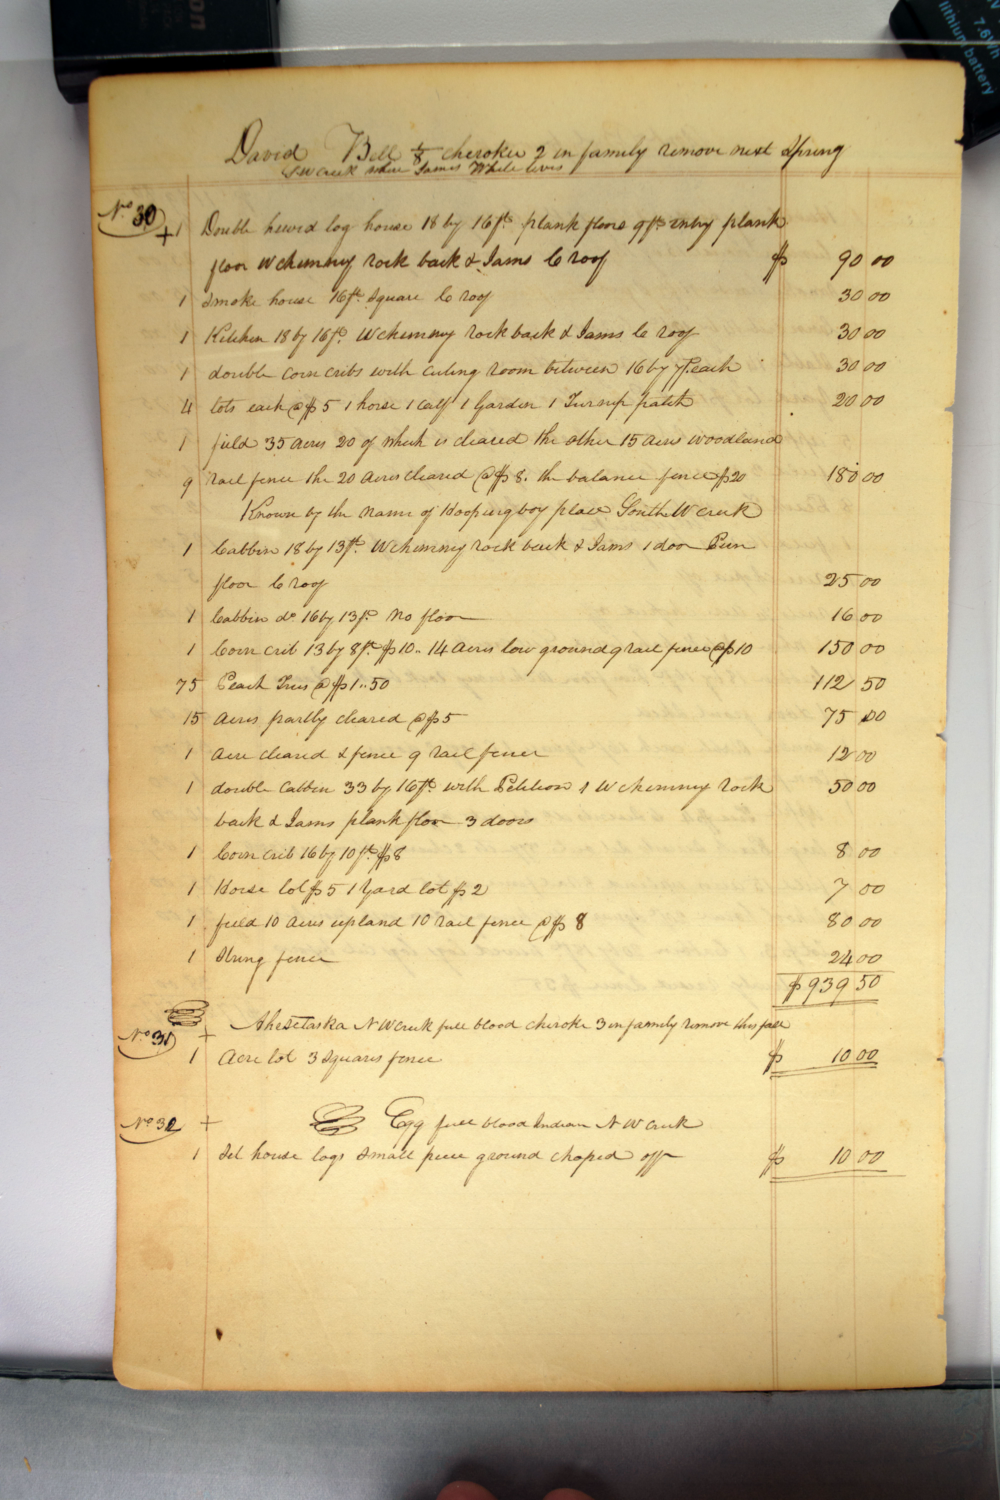 David Bell 1/8 cherokee 2 in family remove next Spring
S W Creek where James White lives
No 30
+1 Double hewd log house 18 by 16 ft plank floors 9 ft entry plank
floor W chimney rock back & Jams C roof $ 90 00
1 Smoke house 16 ft Square C roof 30 00
1 Kitchen 18 by 16 ft W chimney rock back & Jams C roof 30 00
1 double corn cribs with room between 16 by 7 ft each 30 00
4 lots each @ $5 1 horse 1 calf 1 Garden 1 Turnip patch 20 00
1 field 35 acres 20 of which is cleared the other 15 acres woodland
9 rail fence the 20 acres cleared @ $8. the balance fence $20 180 00
Known by the name of Hoopingboy place South W creek
1 Cabbin 18 by 13 ft W chimney rock back & Jams 1 door Pun
floor C roof 25 00
1 Cabbin do 16 by 13 ft No floor 16 00
1 Corn crib 13 by 8 ft $10.. 14 acres low ground 9 rail fence @ $10 150 00
75 Peach Trees @ $1..50 112 50
15 acres partly cleared @ $5 75 00
1 acre cleared & fence 9 rail fence 12 00
1 double Cabbin 33 by 16 ft with Petition 1 W chimney rock 50 00
back & Jams plank floor 3 doors
1 Corn crib 16 by 10 ft $8 8 00
1 Horse lot $5 1 Yard lot $2 7 00
1 field 10 acres upland 10 rail fence @ $8 80 00
1 String fence 24 00
$ 939 50
No 31 + Ahesetaska N W Creek full blood cheroke 3 in family remove this fall
1 Acre lot 3 Squares fence $ 10 00
No 32 + Egg full blood Indian N W Creek
1 Set house logs Small piece ground choped off $ 10 00
lithium battery